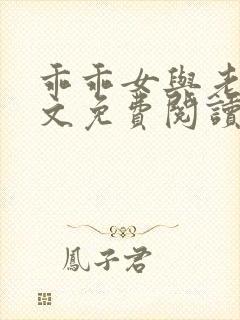 乖乖女與老
文免費閱讀
鳳子君